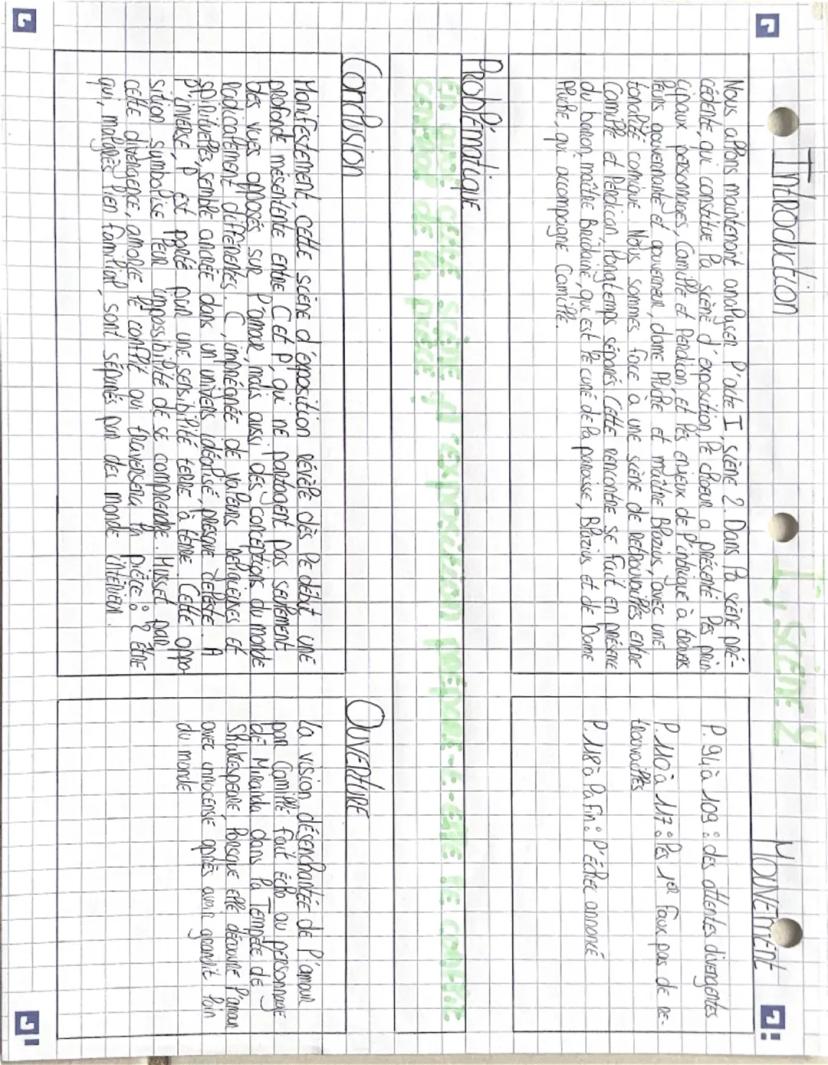 I, scène 2
Introduction
Nous allons maintenant analyser l'acte I, scène 2. Dans la scène pré-
cédente, qui constitue la scène d'exposition, le choeur a présenté les prin-
cipaux personnages, Camille et Perdican, et les enjeux de l'intrigue à travers
leurs gouvernante et gouverneur, dame Pluche et maître Blazius, avec une
tonalité comique. Nous sommes face à une scène de retrouvailles entre
Camille et Perdican, longtemps séparés. Cette rencontre se fait en présence
du baron, maître Bridaine, qui est le curé de la paroisse, Blazius et de Dame
Pluche, qui accompagne Camille.
Mouvement
P. 94 à 109 : des attentes divergentes
P. 110 à 117 : les 1er faux pas de re-
trouvailles
P. 118 à la fin : l'échec annoncé
Problématique
En quoi cette scène d'exposition prépare-t-elle le conflit
central de la pièce ?
Conclusion
Manifestement cette scène d'exposition révèle dès le début une
profonde mésentente entre C et P, qui ne partagent pas seulement
des vues opposés sur l'amour, mais aussi des conceptions du monde
radicalement différentes. C, imprégnée de valeurs religieuses et
spirituelles, semble ancrée dans un univers idéalisé, presque céleste. A
l'inverse, P est porté par une sensibilité terre à terre. Cette oppo-
sition symbolise leur impossibilité de se comprendre. Musset par
cette divergence, amorce le conflit qui traversera la pièce : 2 être
qui, malgrés lien familial, sont séparés par des monde intérieur.
Ouverture
La vision désenchantée de l'amour
par Camille fait écho au personnage
de Miranda dans la Tempête de
Shakespeare, lorsque elle découvre l'amour
avec innocense après avoir grandit loin
du monde